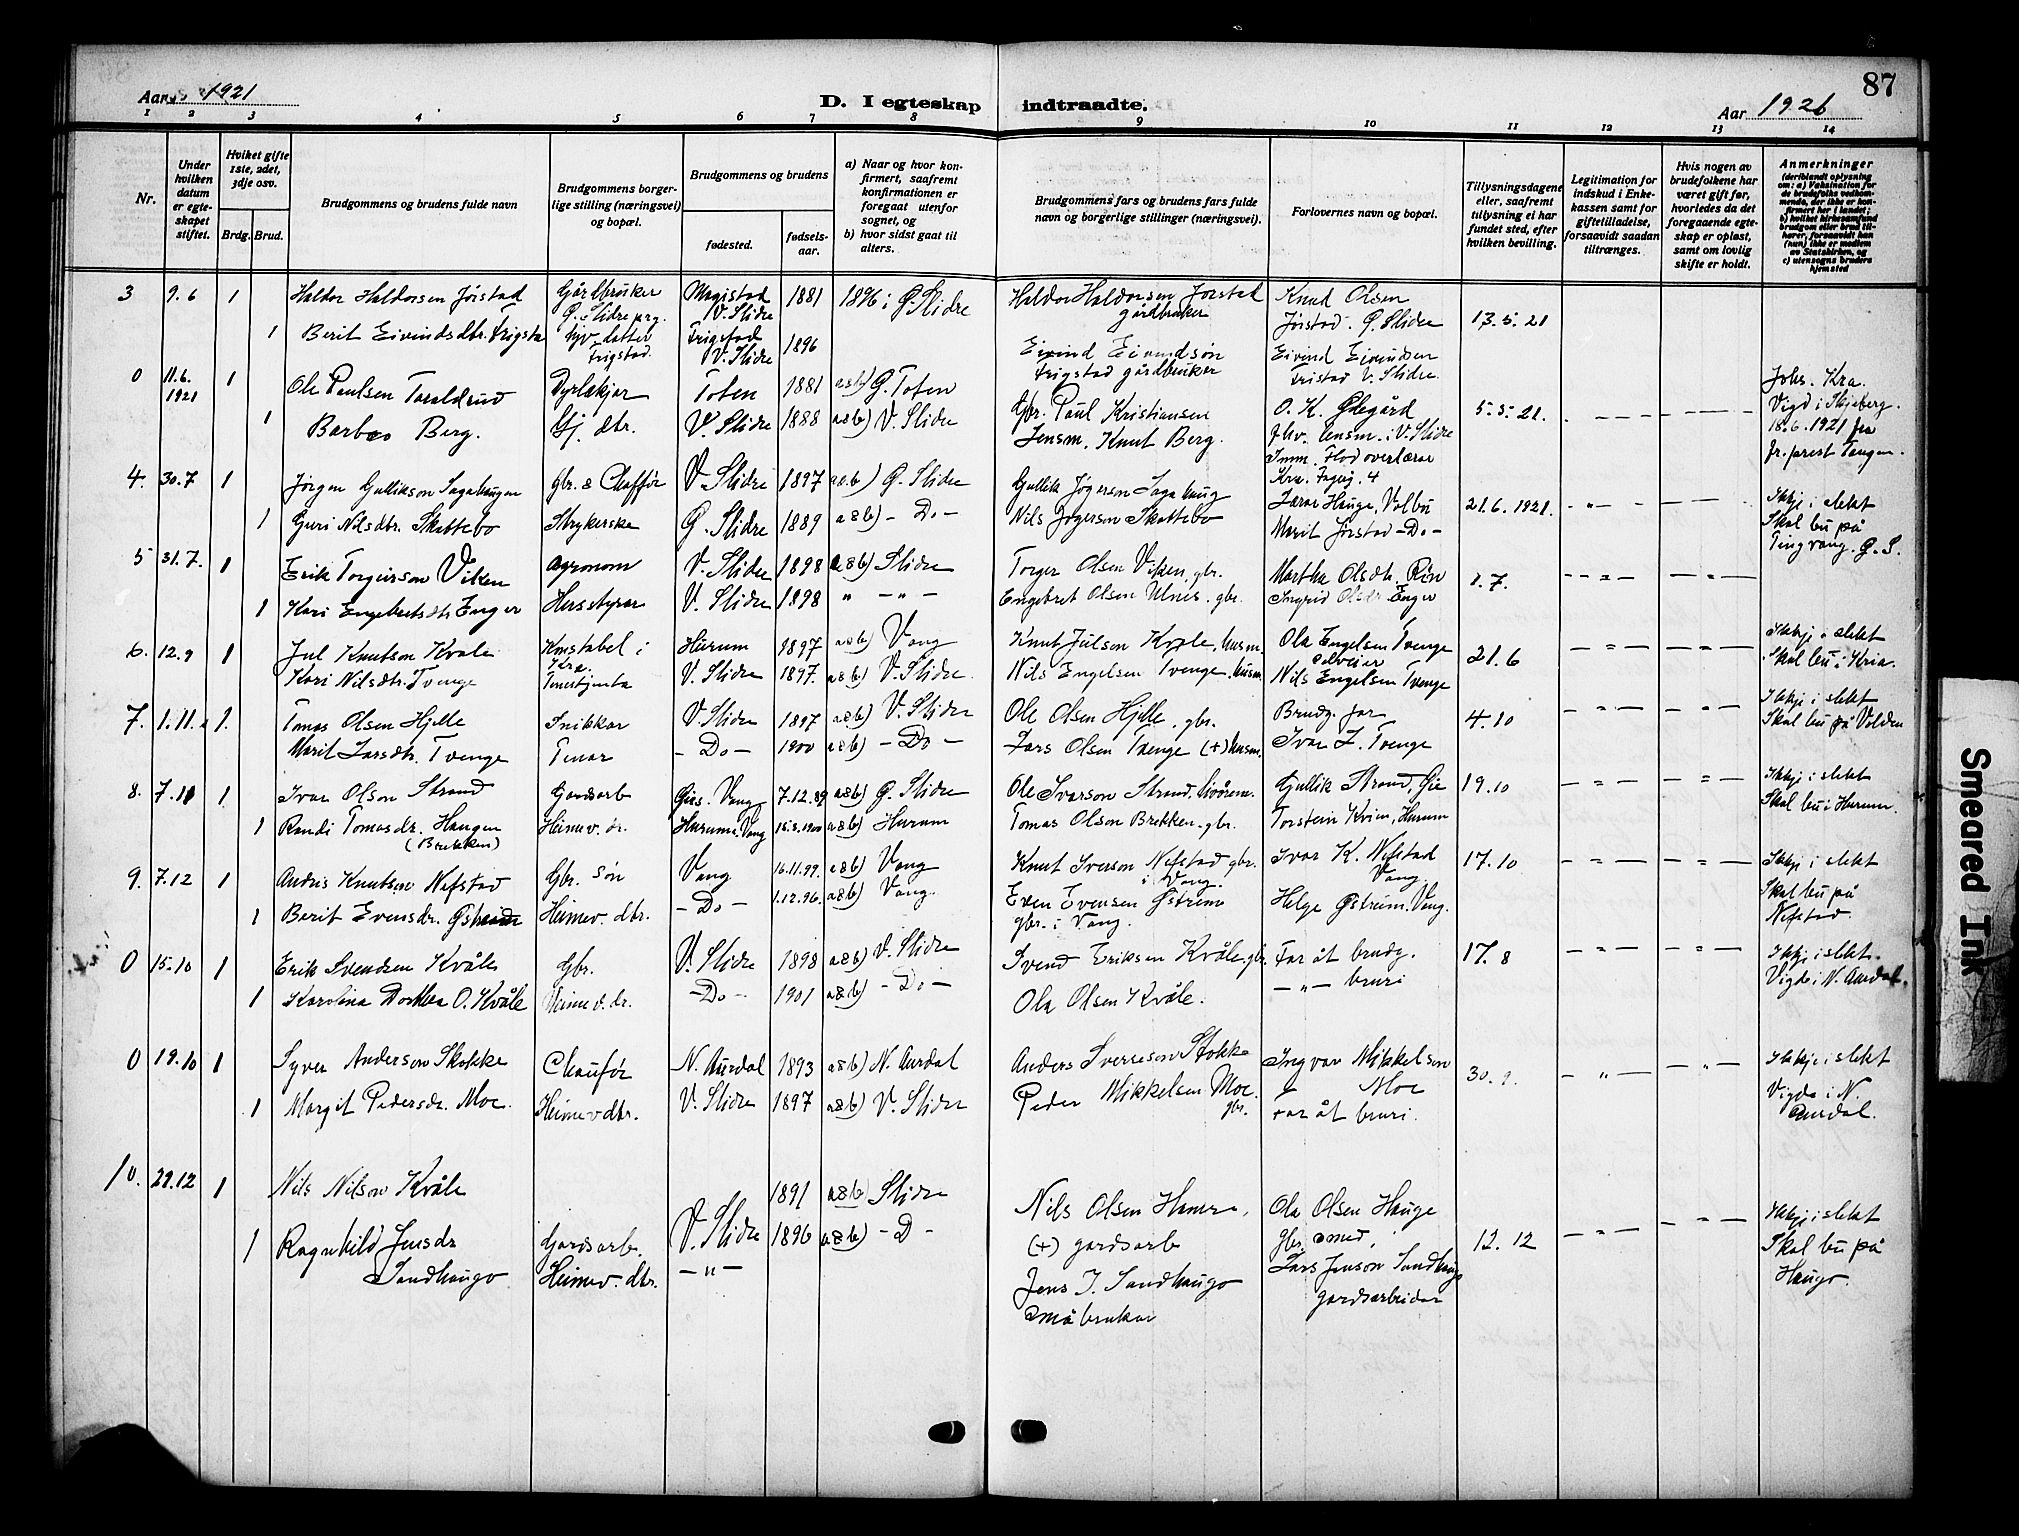 87
Aar 1921
D. I egteskap indtraadte.
Aar 1921
1 2 3 4 5 6 7 8 9 10 11 12 13 14
Nr.
Under hvilken datum er egteskapet stiftet.
Hvilket gifte 1ste, 2det, 3dje osv.
Brdg. Brud.
Brudgommens og brudens fulde navn
Brudgommens borgerlige stilling (næringsvei) og bopæl.
Brudgommens og brudens
fødested.
fødselsaar.
a) Naar og hvor konfirmert, saafremt konfirmationen er foregaat utenfor sognet, og
b) hvor sidst gaat til alters.
Brudgommens fars og brudens fars fulde navn og borgerlige stillinger (næringsvei).
Forlovernes navn og bopæl.
Tillysningsdagene eller, saafremt tillysning ei har fundet sted, efter hvilken bevilling.
Legitimation for indskud i Enkekassen samt for giftetilladelse, forsaavidt saadan tiltrænges.
Hvis nogen av brudefolkene har været gift før, hvorledes da det foregaaende egteskap er opløst, samt om lovlig skifte er holdt.
Anmerkninger
(deriblandt oplysning om: a) Vaksination for de brudefolks vedkommende, der ikke er konfirmert her i landet; b) hvilket kirkesamfund brudgom eller brud tilhører, forsaavidt han (hun) ikke er medlem av Statskirken, og c) utensogns bruders hjemsted
3 9.6 1 Haldor Haldorsen Jørstad Gårdbruker Ø. Slidre prg. Magistad V. Slidre 1881 1896 i Ø. Slidre Haldor Haldorsen Jørstad gårdbruker Knud Olsen Jørstad. Ø. Slidre 13.5.21
1 Berit Eivindsdtr. Frigsta Frigstad V. Slidre 1896 Eivind Eivindsøn Frigstad gårdbruker Eivind Eivindsen V. Slidre
0 11.6. 1921 1 Ole Paulsen Taraldrud Dyrlækjar Toten 1881 a&b) Ø. Toten Gbr. Paul Kristiansen O. K. Ødegård 5.5.21. Vigd i Skjeberg. 18.6.1921
1 Berg. Gj. dtr. V. Slidre 1888 a&b) V. Slidre Lensm. Knut Berg. fhv. lensm. i V. Slidre
4. 30.7 1 Jørgen Gulliksen Sagahaugen Gbr. & Chaffør V. Slidre 1897 a&b) Ø. Slidre Gullik Jøgerson Sagahaug Lærar Hauge, Volbu 21.6.1921. Ikkje i slekt
1 Guri Nilsdtr. Skattebo Strykerske Ø. Slidre 1889 a&b) - Do - Nils Jøgerson Skattebo Marit Jørstad - Do - Skal bu på Tingvang. Ø. S.
5 31.7. 1 Erik Torgeirson Viken Agronom V. Slidre 1898 a&b) Slidre Torger Olsen Viken, gbr. Martha Olsdtr. Røn 1.7.
1 Kari Engebretsdtr Enger Husstyrar V. Slidre 1898 " - " - Engebret Olsen Ulnes, gbr. Ingrid Olsdr Enger
6. 12.9 1 Jul Knutson Kvale Konstabel i Kra. Hurum 1897 a&b) Vang Knut Julson Kvale, husm. Ola Engelsen Tvenge 21.6 Ikkje i slekt
Kari Nilsdtr. Tvenge Tenestjenta V. Slidre 1897. a&b) V. Slidre. Nils Engelsen Tvenge, husm Nils Engelsen Tvenge Skal bu i Kria.
7. 1.11. 1. Tomas Olsen Hjelle Snikkar V. Slidre 1897 a&b) V. Slidre Ole Olsen Hjelle, gbr. Brudg. far 4.10 Ikkje i slekt
Marit Larsdtr. Tvenge Tenar - Do - 1900 a&b) - Do - Lars Olsen Tvenge (+) husm. Ivar L. Tvenge Skal bu på Volden
8. 7.11 1 Ivar Olson Strand Gardsarb Vang 7.12.89 a&b) Ø. Slidre Ole Ivarson Strand, Gullik Strand, 19.10 Ikkje i slekt
1 Randi Tomasdr. Haugen (Brekken) Heimev. dr. Hurum, Vang 15.5.1900 a&b) Hurum Tomas Olson Brekken. gbr. Torstein Kvien, Hurum Skal bu i Hurum.
9. 7.12 1 Andris Knutson Nefstad Gbr. søn Vang 16.11.99. a&b) Vang Knut Iverson Nefstad gbr. i Vang. Ivar K. Nefstad Vang. 17.10 Ikkje i slekt
1 Berit Evensdr. Østrem Heimev. dtr. - Do - 1.12.96. a&b) Vang. Even Evensen Østrem gbr. i Vang. Helge Østrem. Vang. Skal bu på Nefstad.
0 15.10 1 Erik Svendsen Kvåle Gbr. V. Slidre 1898 a&b) V. Slidre Svend Eriksen Kvåle. gbr. Far åt brudg. 17.8 Ikkje i slekt.
1 Karolina Dorthea O. Kvåle Heimev. dr. - Do - 1901 a&b) - Do - Ola Olsen Kvåle. - " - bruri Vigde i N. Aurdal.
0 19.10 1 Syver Anderson Stokke Chaufør N. Aurdal 1893 a&b) N. Aurdal Anders Stokke Ingvar Mikkelson Moe 30.9. Ikkje i slekt
1 Margit Pedersdr. Moe. Heimev dtr. V. Slidre 1897 a&b) V. Slidre Peder Mikkelsen Moe. gbr. Far åt bruri. Vigde i N. Aurdal.
10. 29.12 1 Nils Nilson Kvåle 1891 a&b) Slidre Nils Olsen Hamre, (+) gardsarb Ola Olsen Hauge gbr. smed, 12.12 Ikkje i slekt
1 Ragnhild Jensdr Sandhaugo Gardsarb. Heimev. dtr. V. Slidre - " - 1896 a&b) - D - Jens J. Sandhaugo småbrukar Lars Jenson Sandhaug gardsarbeidar Skal bu på Haugo.
Smeared Ink